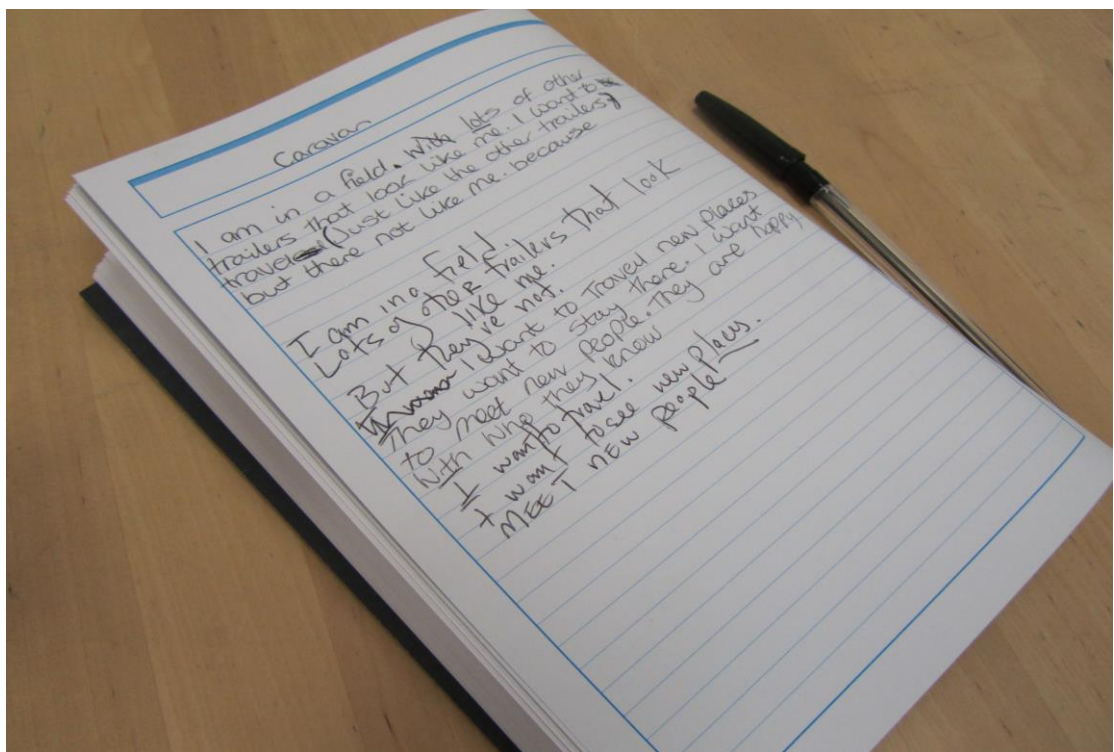 Caravan
I am in a field. With lots of other
trailers that look like me. I want to
travel (Just like the other trailers)
but there not like me. because
I am in a field
Lots of other trailers that look
like me.
But they've not.
I want to travell new places
They want to stay there. I want
to meet new people. They are happy
with who they know
I want to travel.
I want to see new places.
MEET new people